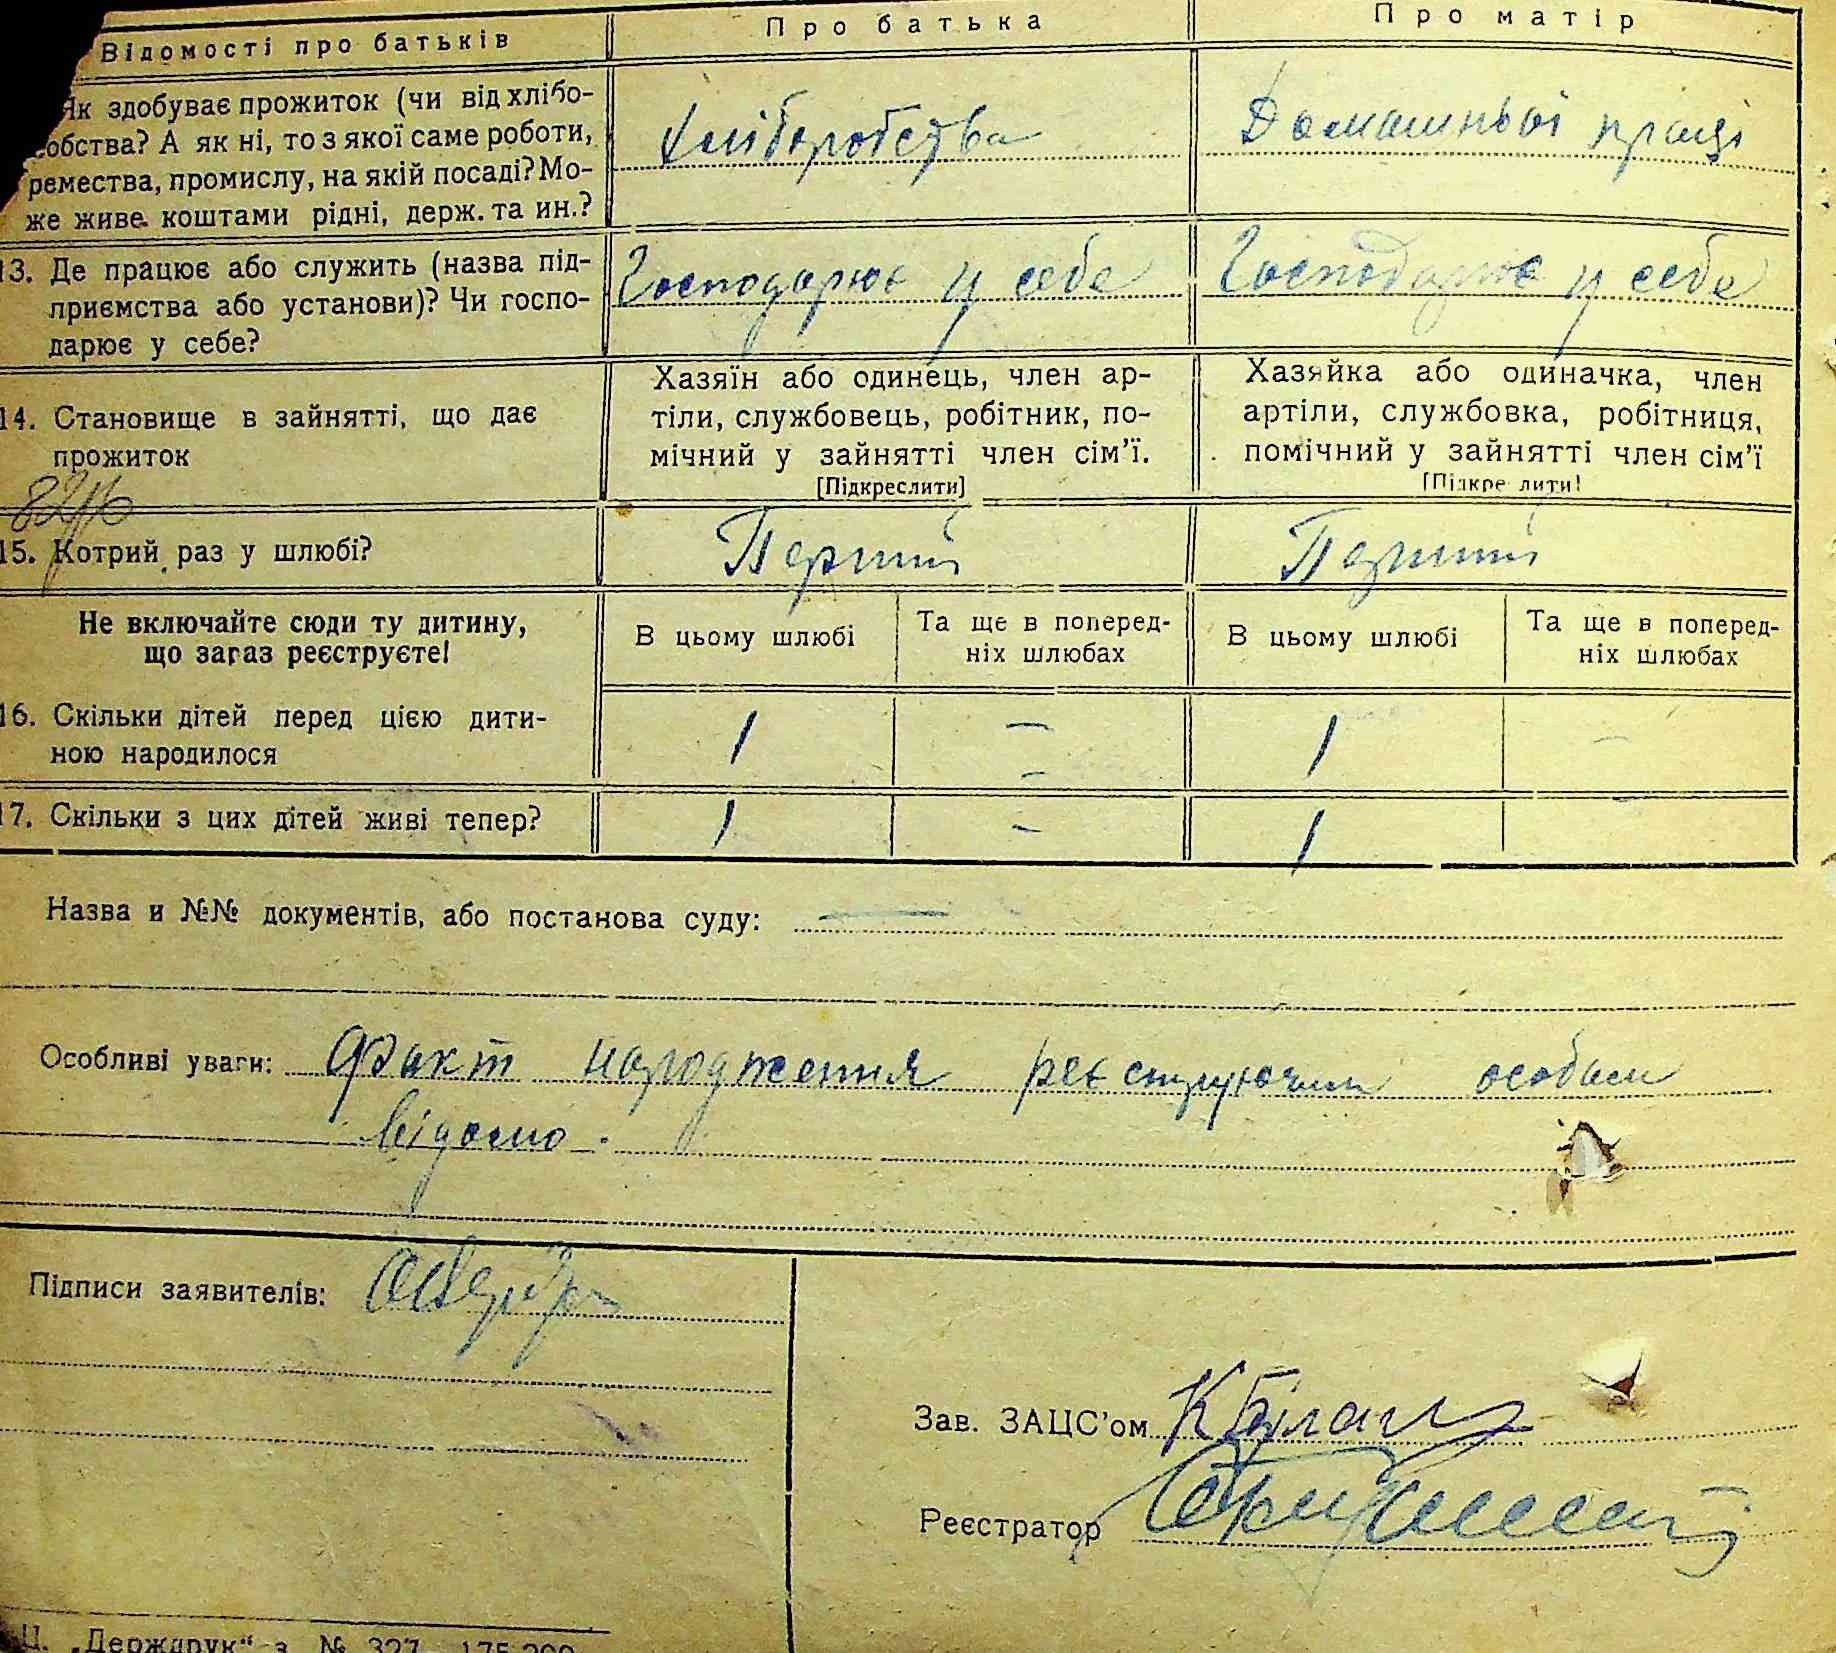 Відомості про батьків
Про батька
Про матір
Як здобуває прожиток (чи від хлібо-
обства? А як ні, то з якої саме роботи,
ремества, промислу, на якій посаді? Мо-
же живе коштами рідні, держ. та ин.?
Хліборобства
Домашньої праці
13. Де працює або служить (назва під-
приємства або установи)? Чи госпо-
дарює у себе?
Господарює у себе
Господарює у себе
14. Становище в зайнятті, що дає
прожиток
Хазяїн або одинець, член ар-
тіли, службовець, робітник, по-
мічний у зайнятті член сім'ї.
[Підкреслити]
Хазяйка або одиначка, член
артіли, службовка, робітниця,
помічний у зайнятті член сім'ї
[Підкре лити]
15. Котрий раз у шлюбі?
Перший
Перший
Не включайте сюди ту дитину,
що зараз реєструєте!
В цьому шлюбі
Та ще в поперед-
ніх шлюбах
В цьому шлюбі
Та ще в поперед-
ніх шлюбах
16. Скільки дітей перед цією дити-
ною народилося
1 – 1 –
17. Скільки з цих дітей живі тепер?
1 – 1
Назва и №№ документів, або постанова суду: —
Особливі уваги: Факт народження реєструючим особам
відомо.
Підписи заявителів:
Зав. ЗАЦС'ом
Реєстратор
"Держдрук" з. № 327 175.200